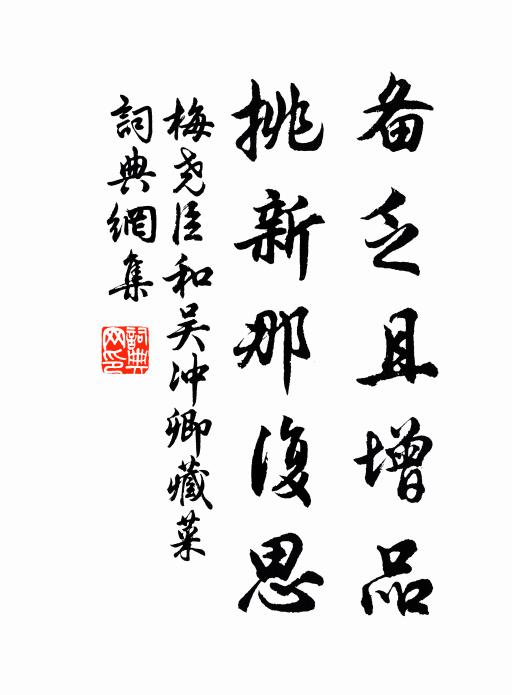 备乏且增品
挑新那復思
梅尧臣和吴冲卿藏菜
詞典網集
詞典网印